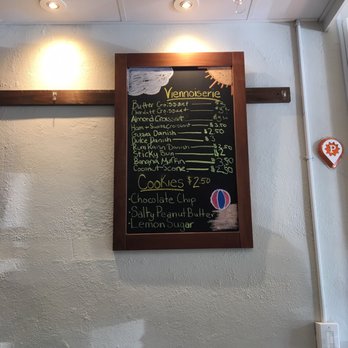 Viennoiserie
Butter Croissant
Croissant
Almond Croissant
Ham + Swiss Croissant $3.50
Guava Danish $2.50
Dulce Danish
Rum Raisin Danish $2.50
Sticky Bun $2
Banana Muffin $2.50
Coconut Scone $2.50
Cookies $2.50
• Chocolate Chip
• Salty Peanut Butter
• Lemon Sugar
P